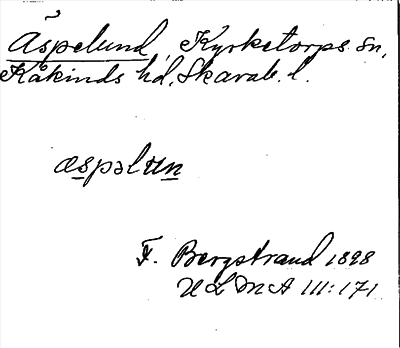 Äspelund, Kyrketorps sn,
Kåkinds hd, Skarab. l.
æspəlun
F. Bergstrand 1898
ULMA III:171